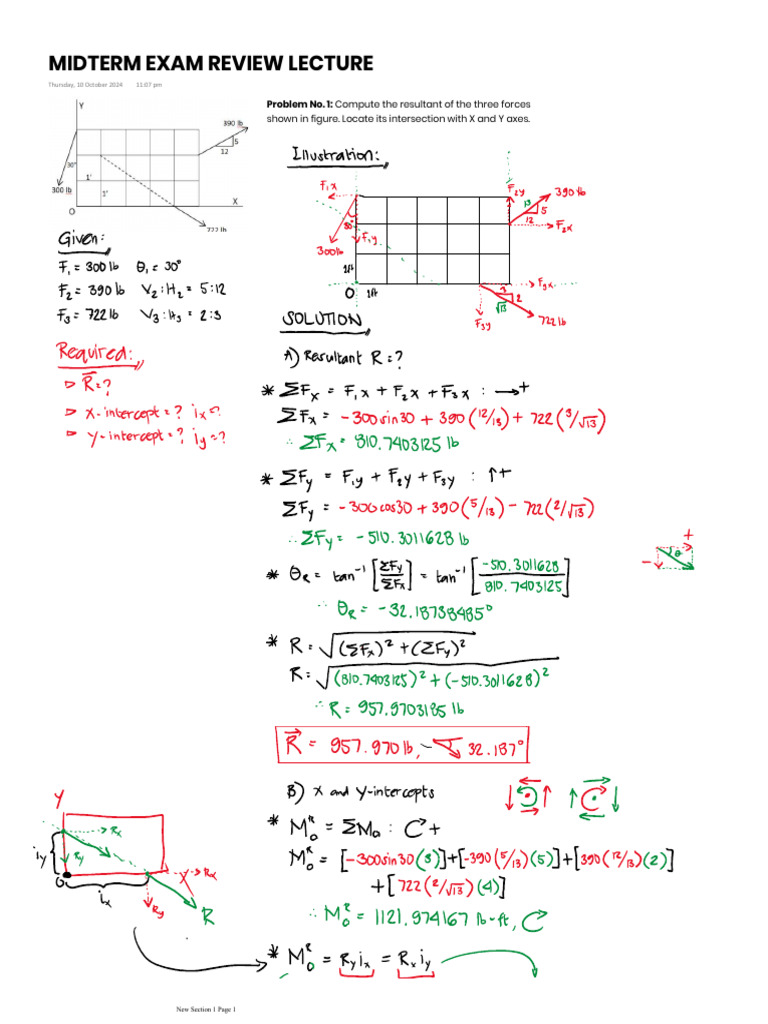 MIDTERM EXAM REVIEW LECTURE
Thursday, 10 October 2024 11:07 pm
Problem No. 1: Compute the resultant of the three forces
shown in figure. Locate its intersection with X and Y axes.
Y
390 lb
5
12
30°
1'
300 lb
1'
X
O
722 lb
Illustration:
F₁x
30°
F₁y
300lb
1ft
O 1ft
F₂y
390 lb
13
5
12
F₂x
F₃x
3
2
√13
F₃y
722 lb
Given:
F₁ = 300 lb θ₁ = 30°
F₂ = 390 lb V₂:H₂ = 5:12
F₃ = 722 lb V₃:H₃ = 2:3
Required:
R = ?
x-intercept = ? ix = ?
y-intercept = ? iy = ?
SOLUTION
A) Resultant R = ?
* ΣFx = F₁x + F₂x + F₃x : → +
ΣFx = -300sin30 + 390(12/13) + 722(3/√13)
∴ ΣFx = 810.7403125 lb
* ΣFy = F₁y + F₂y + F₃y : ↑ +
ΣFy = -300cos30 + 390(5/13) - 722(2/√13)
∴ ΣFy = -510.3011628 lb
+
θ
-
* θR = tan⁻¹ [ΣFy/ΣFx] = tan⁻¹ [-510.3011628/810.7403125]
∴ θR = -32.18738485°
* R = √(ΣFx)² + (ΣFy)²
R = √(810.7403125)² + (-510.3011628)²
∴ R = 957.9703185 lb
R = 957.970 lb, 32.187°
B) x and y-intercepts
* M₀ᴿ = ΣM₀ : ↻ +
M₀ᴿ = [-300sin30(3)] + [-390(5/13)(5)] + [390(12/13)(2)]
+ [722(2/√13)(4)]
∴ M₀ᴿ = 1121.974167 lb-ft, ↻
* M₀ᴿ = Ry ix = Rx iy
Y
Rx
iy
Ry
O
ix
X
Rx
Ry
R
New Section 1 Page 1